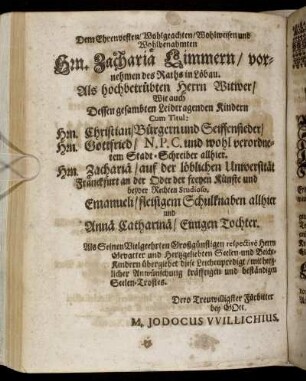 Dem Ehrenvesten/ Wohlgeachten/ Wohlweisen und
Wohlbenahmten
Hrn. Zachariä Limmern/ vor-
nehmen des Raths in Löbau.
Als hochbetrübten Herrn Witwer/
Wie auch
Dessen gesambten Leidtragenden Kindern
Cum Titul:
Hn. Christian/ Bürgern und Seiffensieder/
Hn. Gottfried/ N. P. C. und wohl verordne-
tem Stadt-Schreiber allhier.
Hn. Zachariä/ auf der löblichen Universität
Franckfurt an der Oder der freyen Künste und
beyder Rechten Studioso.
Emanueli/ fleissigem Schulknaben allhier
und
Annä Catharinä/ Eunigen Tochter.
Als Seinen Vielgeehrten Großgünstigen respectivè Herrn
Gevatter und Hertzgeliebten Seelen-und Beicht-
Kindern übergiebet diese Leichenpredigt/ mit hertz-
licher Anwünschung kräfftigen und beständigen
Seelen-Trostes.
Dero Treuwilligster Fürbitter
bey Gott.
M. JODOCUS VVILLICHIUS.